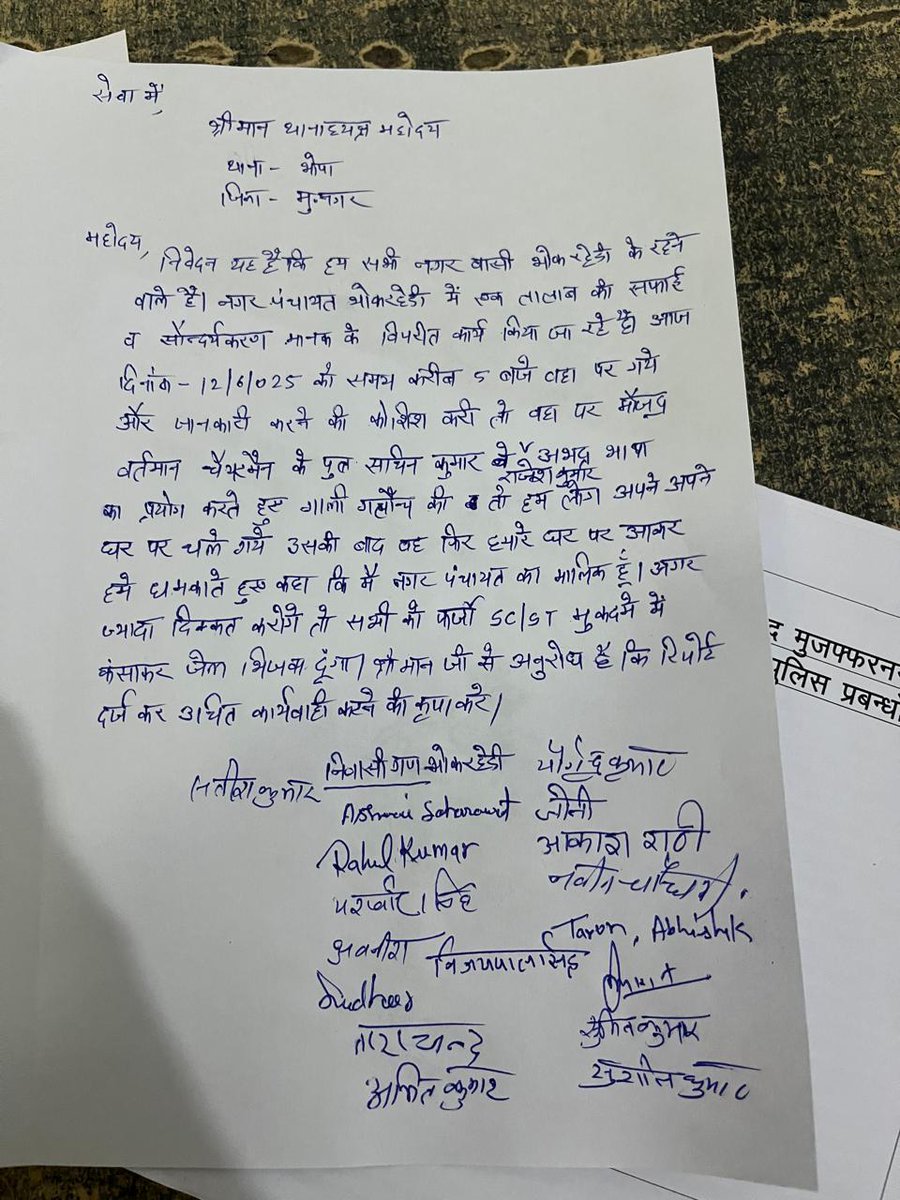 सेवा में,
श्रीमान थानाध्यक्ष महोदय
थाना - भोपा
जिला - मु.नगर
महोदय,
निवेदन यह है कि हम सभी नगर वासी भोकरहेडी के रहने
वाले है। नगर पंचायत भोकरहेडी में एक तालाब की सफाई
व सौन्दर्यकरण मानक के विपरीत कार्य किया जा रहे है। आज
दिनांक - 12/6/025 को समय करीब 5 बजे वहा पर गये
और जानकारी करने की कोशिश करी तो वहा पर मौजूद
वर्तमान चैयरमैन के पुत्र सचिन कुमार व अभद्र भाषा
राजेश कुमार
का प्रयोग करते हुए गाली गलौच की तो हम लोग अपने अपने
घर पर चले गये उसकी बाद वह फिर हमारे घर पर आकर
हमे धमकाते हुए कहा कि मै नगर पंचायत का मालिक हूँ। अगर
ज्यादा दिक्कत करोगे तो सभी को फर्जी SC/ST मुकदमे में
फंसाकर जेल भिजवा दूंगा। श्रीमान जी से अनुरोध है कि रिपोर्ट
दर्ज कर उचित कार्यवाही करने की कृपा करे।
निवासी गण भोकरहेडी
सतीश कुमार
योगेंद्र कुमार
Ashwani Saharawat
जौनी
Rahul Kumar
आकाश राठी
यशवीर सिंह
नवीन चौधरी
Tarun, Abhishek
अवनीश
विजयपाल सिंह
Sudheer
Amit
ताराचन्द
सुमित कुमार
अमित कुमार
सुशील कुमार
द मुजफ्फरन
पुलिस प्रबन्ध